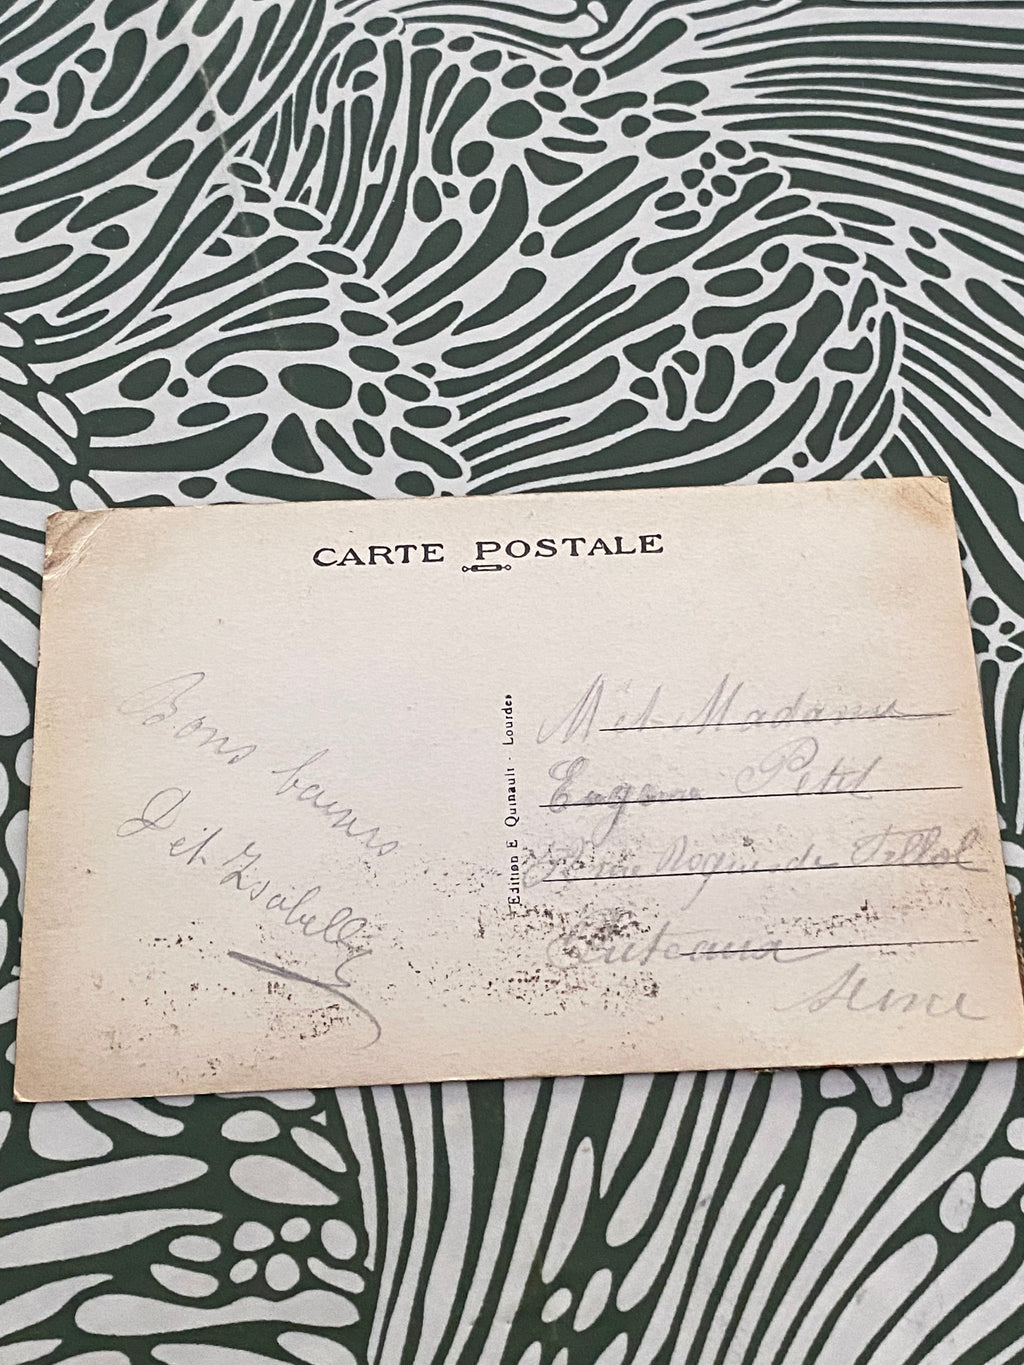 CARTE POSTALE
Bons baisers
D et Isabelle
Edition E Quinault - Lourdes
M et Madame
Eugène Petit
rue Roque de Fillol
Puteaux
Seine